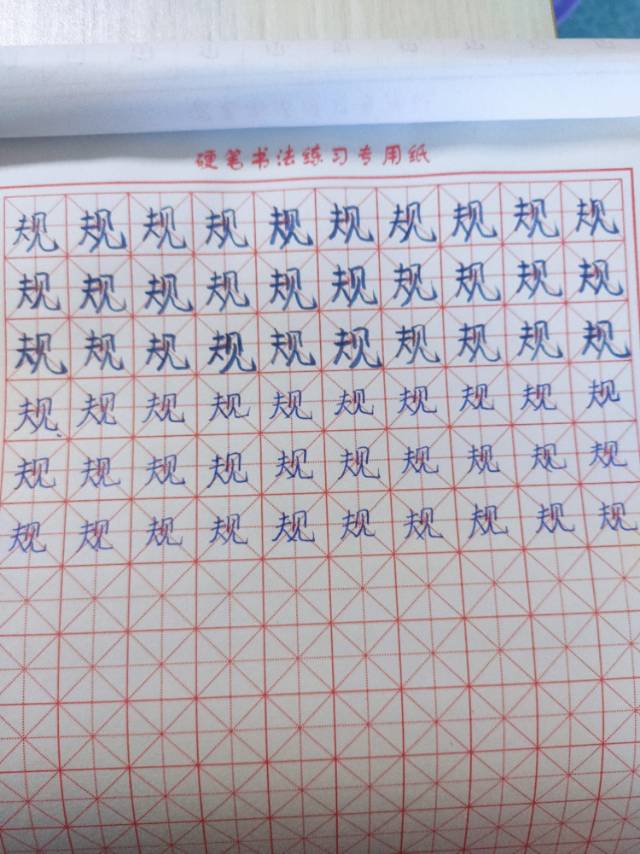 硬笔书法练习专用纸
规规规规规规规规规规
规规规规规规规规规规
规规规规规规规规规规
规规规规规规规规规规
规规规规规规规规规规
规规规规规规规规规规